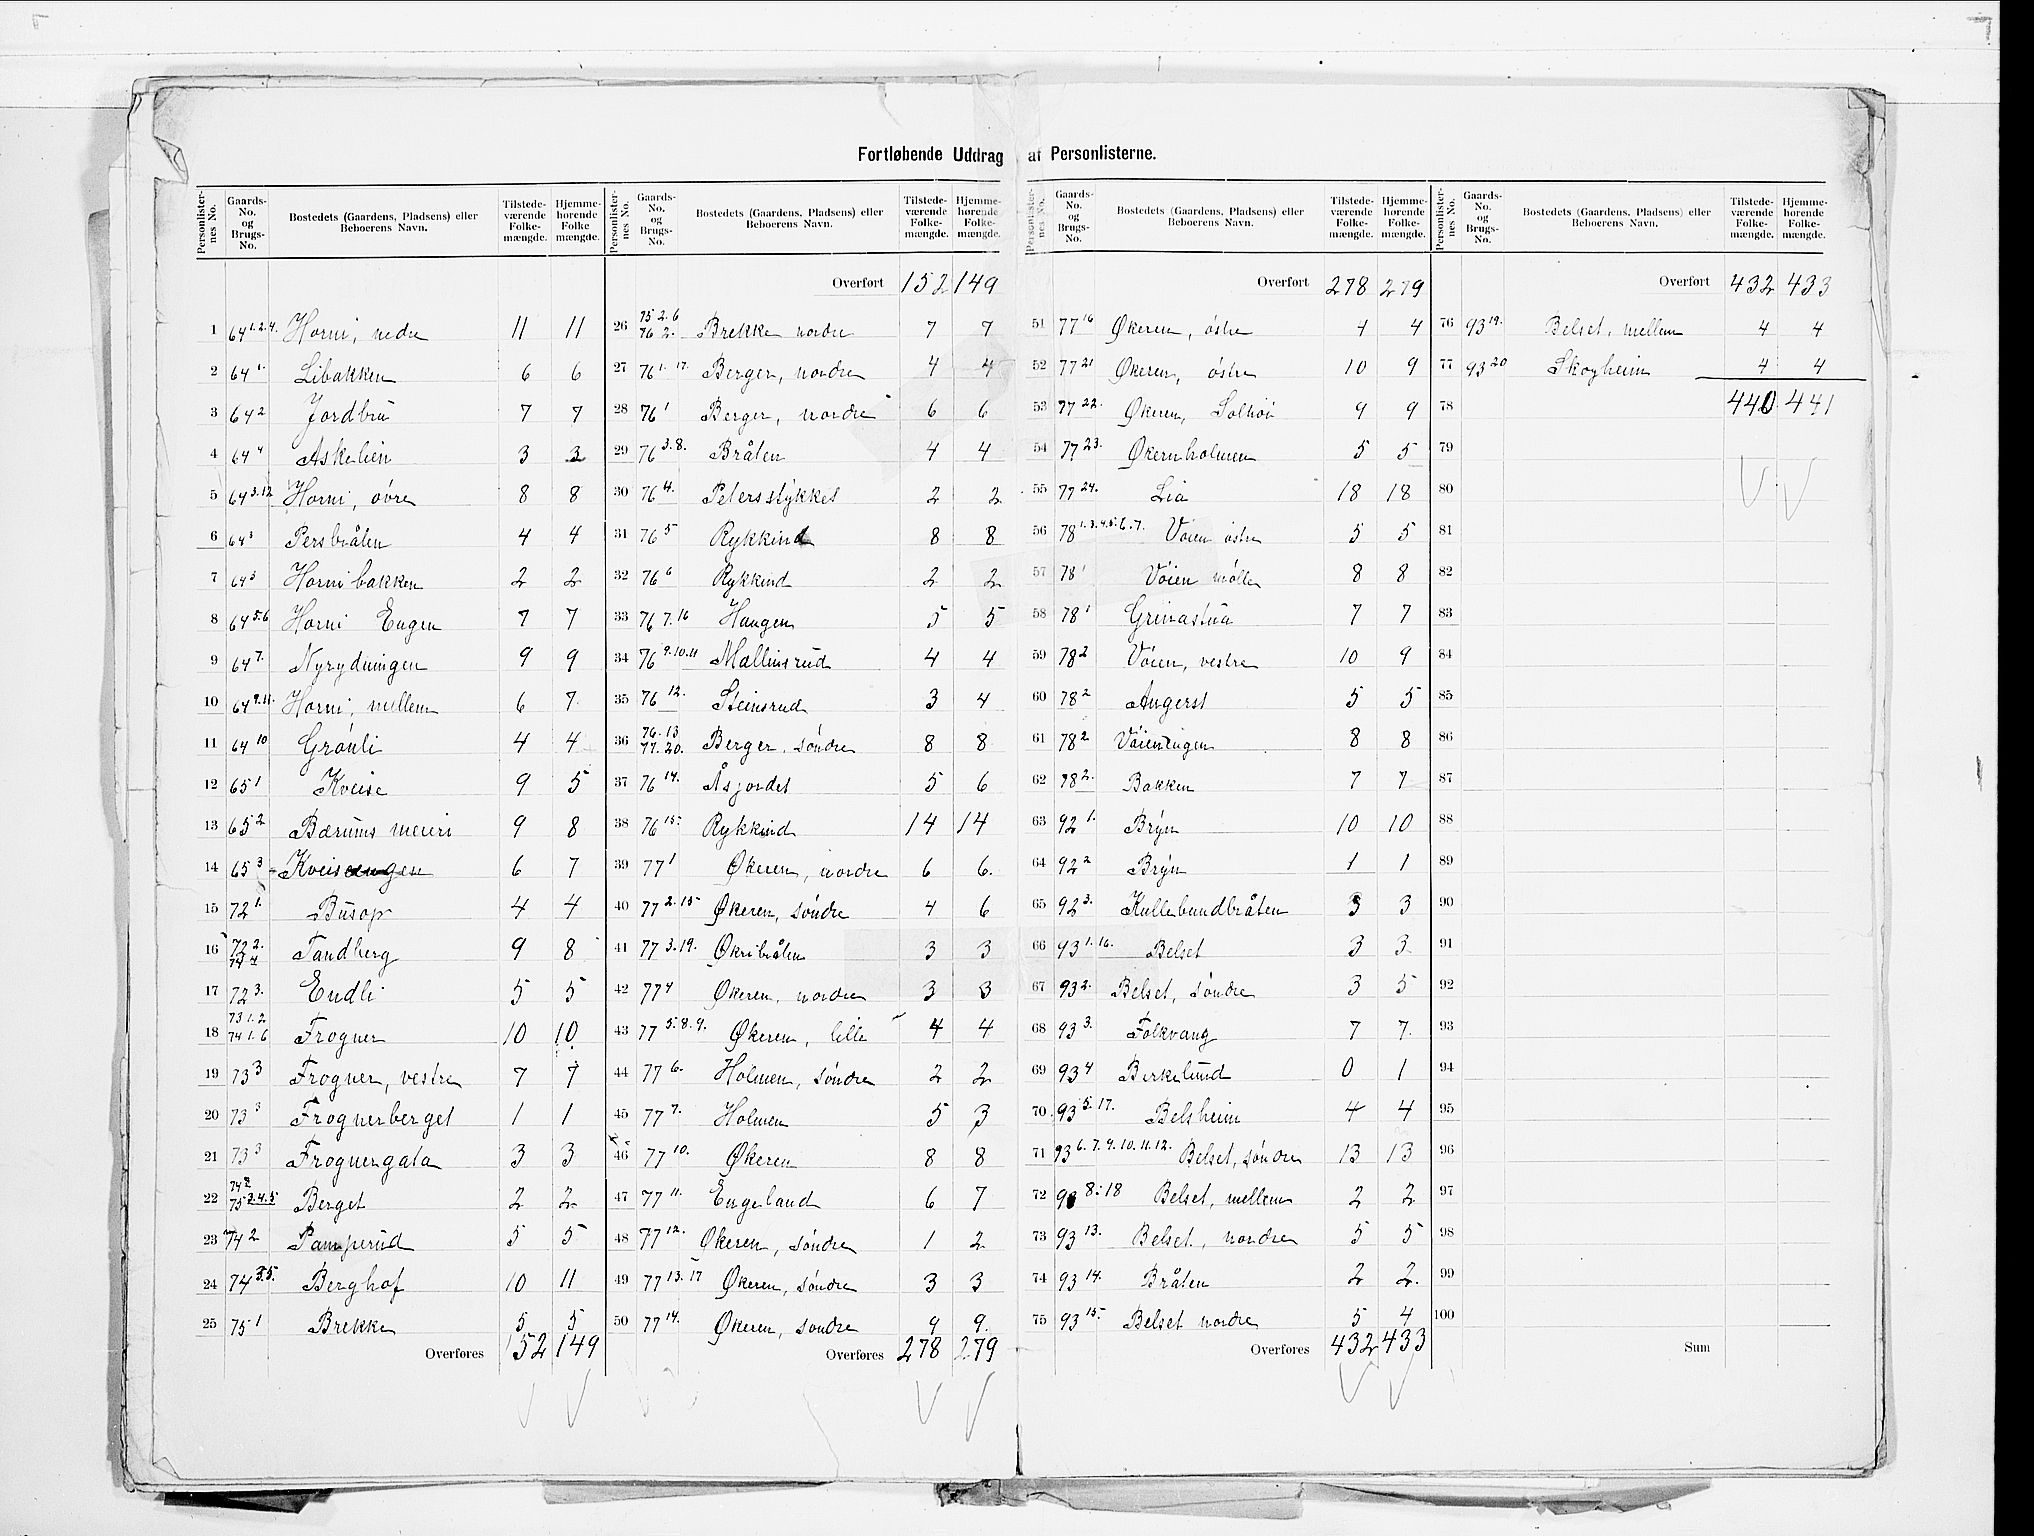 Fortløbende Uddrag af Personlisterne.
Personlisternes No. | Gaards-No. og Brugs-No. | Bostedets (Gaardens, Pladsens) eller Beboerens Navn. | Tilstedeværende Folkemængde. | Hjemmehørende Folkemængde.
1 64 1.2.4. Horni, nedre 11 11
2 64 1. Libakken 6 6
3 64 2 Jordbru 7 7
4 64 4 Askelien 3 3
5 64 3.12 Horni, øvre 8 8
6 64 3 Persbråten 4 4
7 64 3 Hornibakken 2 2
8 64 5.6 Horni Engen 7 7
9 64 7. Nyrydningen 9 9
10 64 9.11. Horni, mellem 6 7
11 64 10 Grønli 4 4
12 65 1 Kveise 9 5
13 65 2 Bærums meieri 9 8
14 65 3 Kveiseengen 6 7
15 72 1. Busop 4 4
16 72 2. 74 4 Tandberg 9 8
17 72 3. Eudli 5 5
18 73 1.2 74 1.6 Frogner 10 10
19 73 3 Frogner, vestre 7 7
20 73 3 Frognerberget 1 1
21 73 3 Frognergata 3 3
22 74 2 75 3.4.5 Berget 2 2
23 74 2 Pamperud 5 5
24 74 3.5. Berghof 10 11
25 75 1 Brekke 5 5
Overføres 152 149
Overført 152 149
26 75 2.6 76 2. Brekke nordre 7 7
27 76 1.17. Berger, nordre 4 4
28 76 1 Berger, nordre 6 6
29 76 3.8. Bråten 4 4
30 76 4. Petersstykket 2 2
31 76 5 Rykkind 8 8
32 76 6 Rykkind 2 2
33 76 7.16 Haugen 5 5
34 76 9.10.11 Mællinsrud 4 4
35 76 12. Steinsrud 3 4
36 76.13 77.20. Berger, søndre 8 8
37 76 14. Åsjordet 5 6
38 76 15. Rykkind 14 14
39 77 1 Økeren, nordre 6 6.
40 77 2.15 Økeren, søndre 4 6
41 77 3.19. Økribråten 3 3
42 77 4 Økeren, nordre 3 3
43 77 5.8.9. Økeren, lille 4 4
44 77 6. Holmen, søndre 2 2
45 77 7. Holmen 5 3
46 77 10. Økeren 8 8
47 77 11. Engeland 6 7
48 77 12. Økeren, søndre 1 2
49 77 13.17 Økeren, søndre 3 3
50 77 14. Økeren, søndre 9 9.
Overføres 278 279
Overført 278 279
51 77 16 Økeren, østre 4 4
52 77 21 Økeren, østre 10 9
53 77 22. Økeren, Solhøi 9 9
54 77 23. Økernholmen 5 5
55 77 24. Lia 18 18
56 78 1.3.4.5.6.7. Vøien østre 5 5
57 78 1 Vøien mølle 8 8
58 78 1 Grinastua 7 7
59 78 2 Vøien, vestre 10 9
60 78 2 Angerst 5 5
61 78 2 Vøienengen 8 8
62 78 2. Bakken 7 7
63 92 1. Bryn 10 10
64 92 2 Bryn 1 1
65 92 3. Kullebundbråten 3 3
66 93 1.16. Belset 3 3
67 93 2. Belset, søndre 3 5
68 93 3. Folkvang 7 7.
69 93 4 Birkelund 0 1
70 93 5.17. Belsheim 4 4
71 93 6.7.9.10.11.12. Belset, søndre 13 13
72 93 8.18 Belset, mellem 2 2
73 93 13. Belset, nordre 5 5
74 93 14. Bråten 2 2.
75 93 15. Belset nordre 5 4
Overføres 432 433
Overført 432 433
76 93 19. Belset, mellem 4 4
77 93 20 Skogheim 4 4
78 440 441
79
80
81
82
83
84
85
86
87
88
89
90
91
92
93
94
95
96
97
98
99
100
Sum